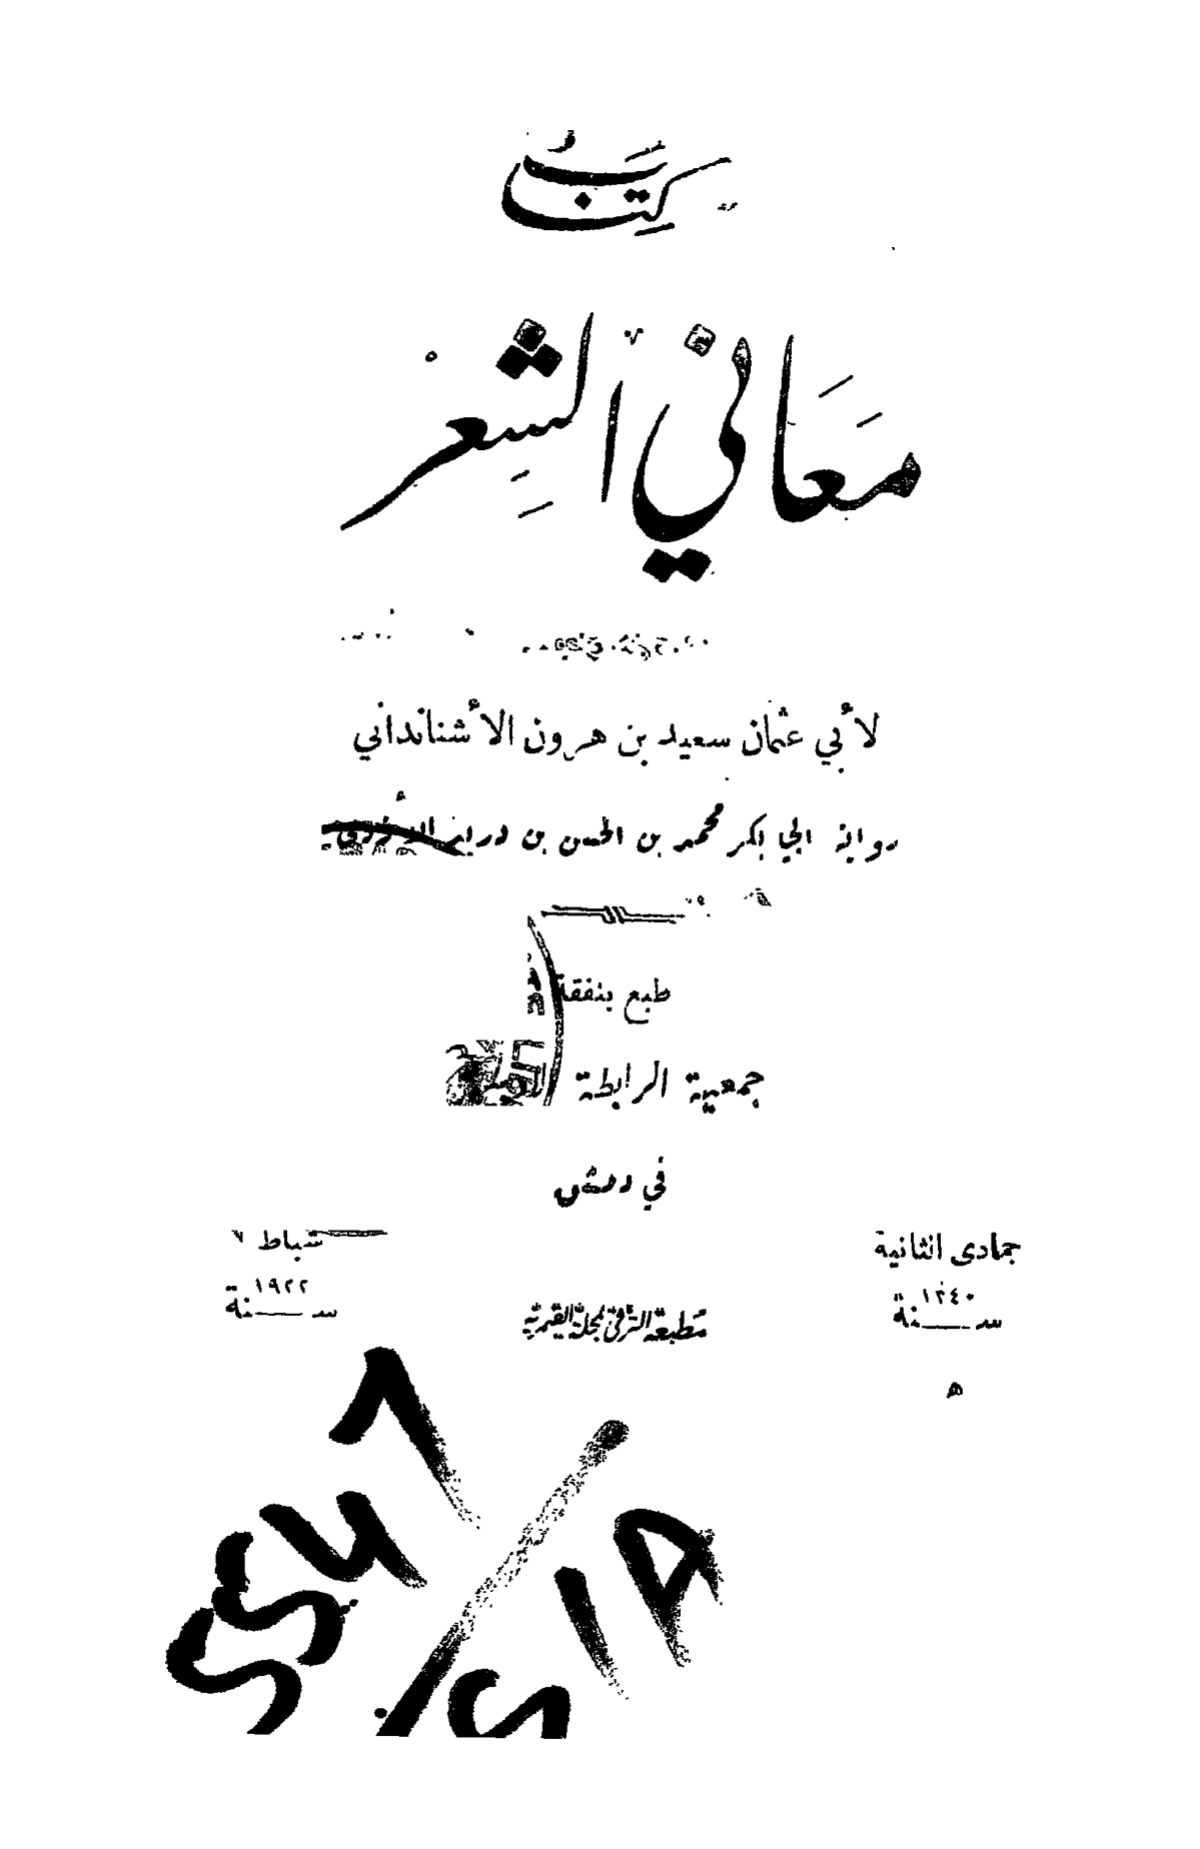 كِتَابُ
مَعَاني الشِعرْ
لأبي عثمان سعيد بن هرون الأشنانداني
رواية ابي بكر محمد بن الحسن بن دريد الأزدي
طبع بنفقة
جمعية الرابطة الأدبية
في دمشق
جمادى الثانية
سنة ١٣٤٠
شباط
سنة ١٩٢٢
مطبعة الترقي لمجلة القيمرية